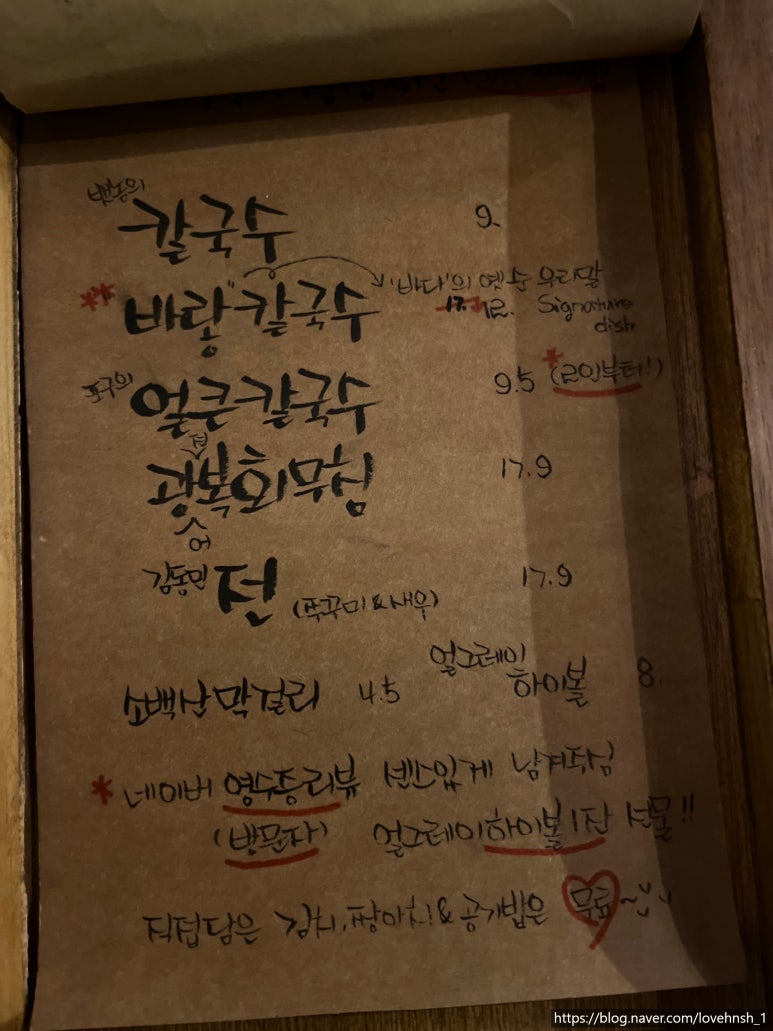 칼국수 9
** "바랑" 칼국수 '바다'의 옛 순 우리말
12. Signature
dish
얼큰칼국수 9.5 *(2인부터!)
전
광복회무침 17.9
어
김동민 전 (쭈꾸미&새우) 17.9
얼그레이
소백산막걸리 4.5 하이볼 8.
* 네이버 영수증리뷰 센스있게 남겨주심
(방문자) 얼그레이하이볼1잔 선물!!
직접담은 김치, 짱아치&공기밥은 무료~
https://blog.naver.com/lovehnsh_1